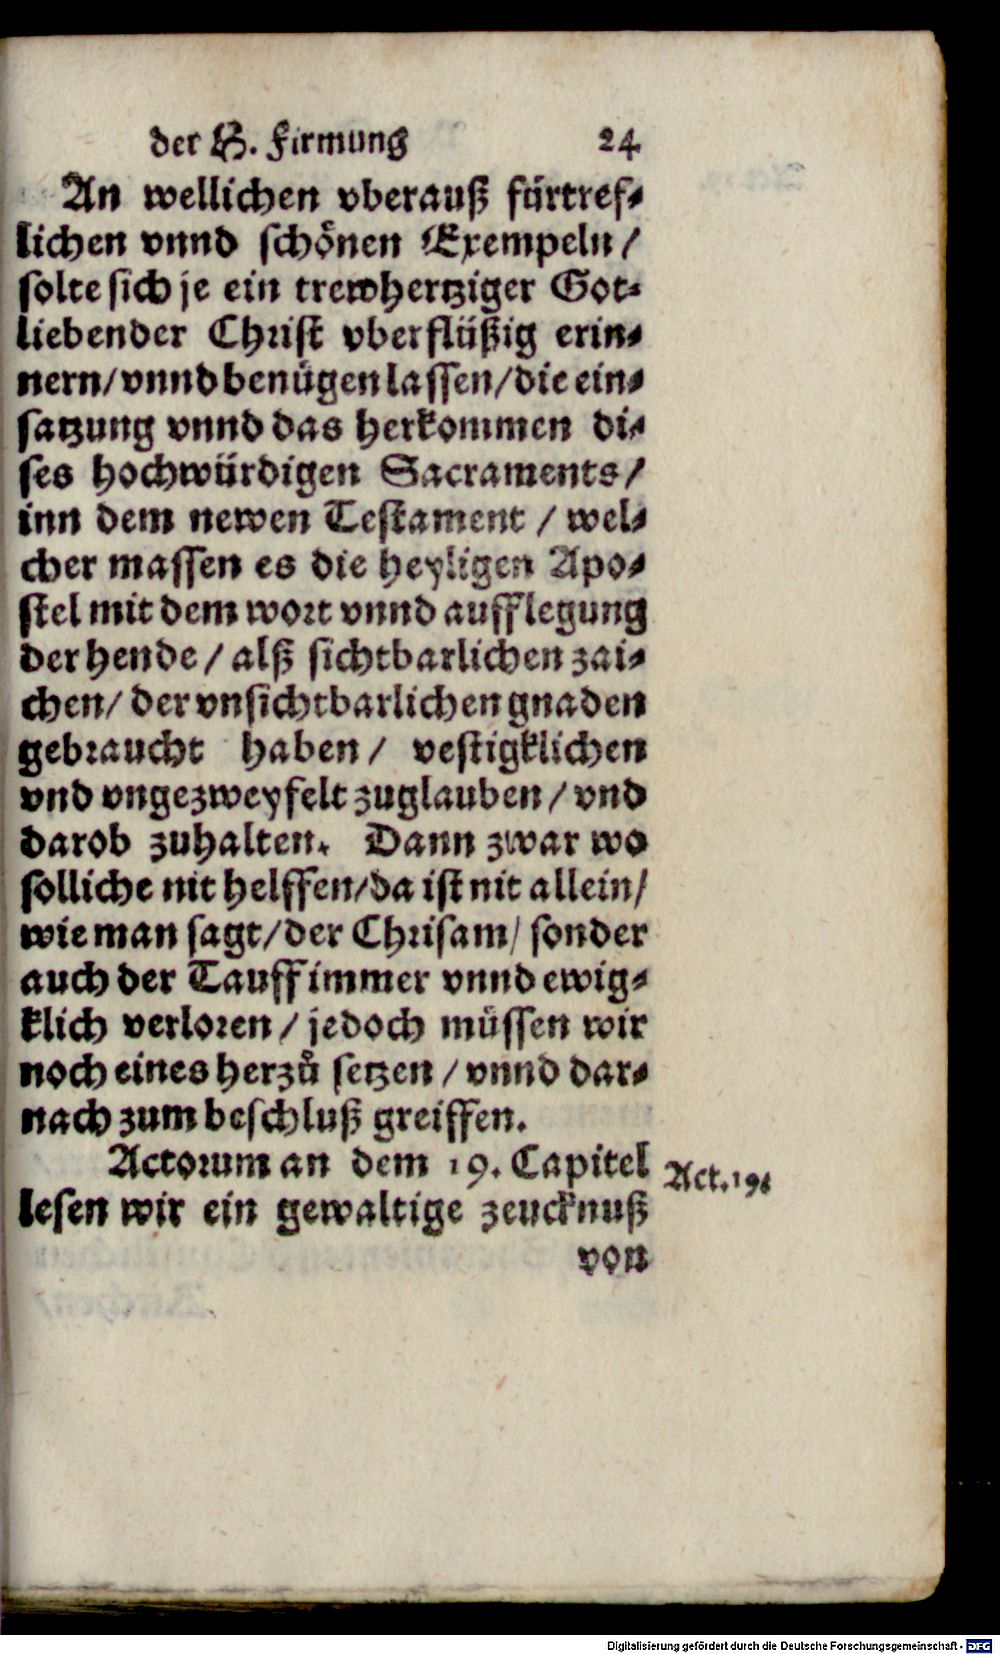 der H. Firmung 24
An wellichen vberauß fürtref-
lichen vnnd schönen Exempeln /
solte sich je ein trewhertziger Got-
liebender Christ vberflüßig erin-
nern / vnnd benügen lassen / die ein-
satzung vnnd das herkommen di-
ses hochwürdigen Sacraments /
inn dem newen Testament / wel-
cher massen es die heyligen Apo-
stel mit dem wort vnnd aufflegung
der hende / alß sichtbarlichen zai-
chen / der vnsichtbarlichen gnaden
gebraucht haben / vestigklichen
vnd vngezweyfelt zuglauben / vnd
darob zuhalten. Dann zwar wo
solliche nit helffen / da ist nit allein /
wie man sagt / der Chrisam / sonder
auch der Tauff immer vnnd ewig-
klich verloren / jedoch müssen wir
noch eines herzů setzen / vnnd dar-
nach zum beschluß greiffen.
Actorum an dem 19. Capitel
Act. 19.
lesen wir ein gewaltige zeucknuß
von
Digitalisierung gefördert durch die Deutsche Forschungsgemeinschaft - DFG